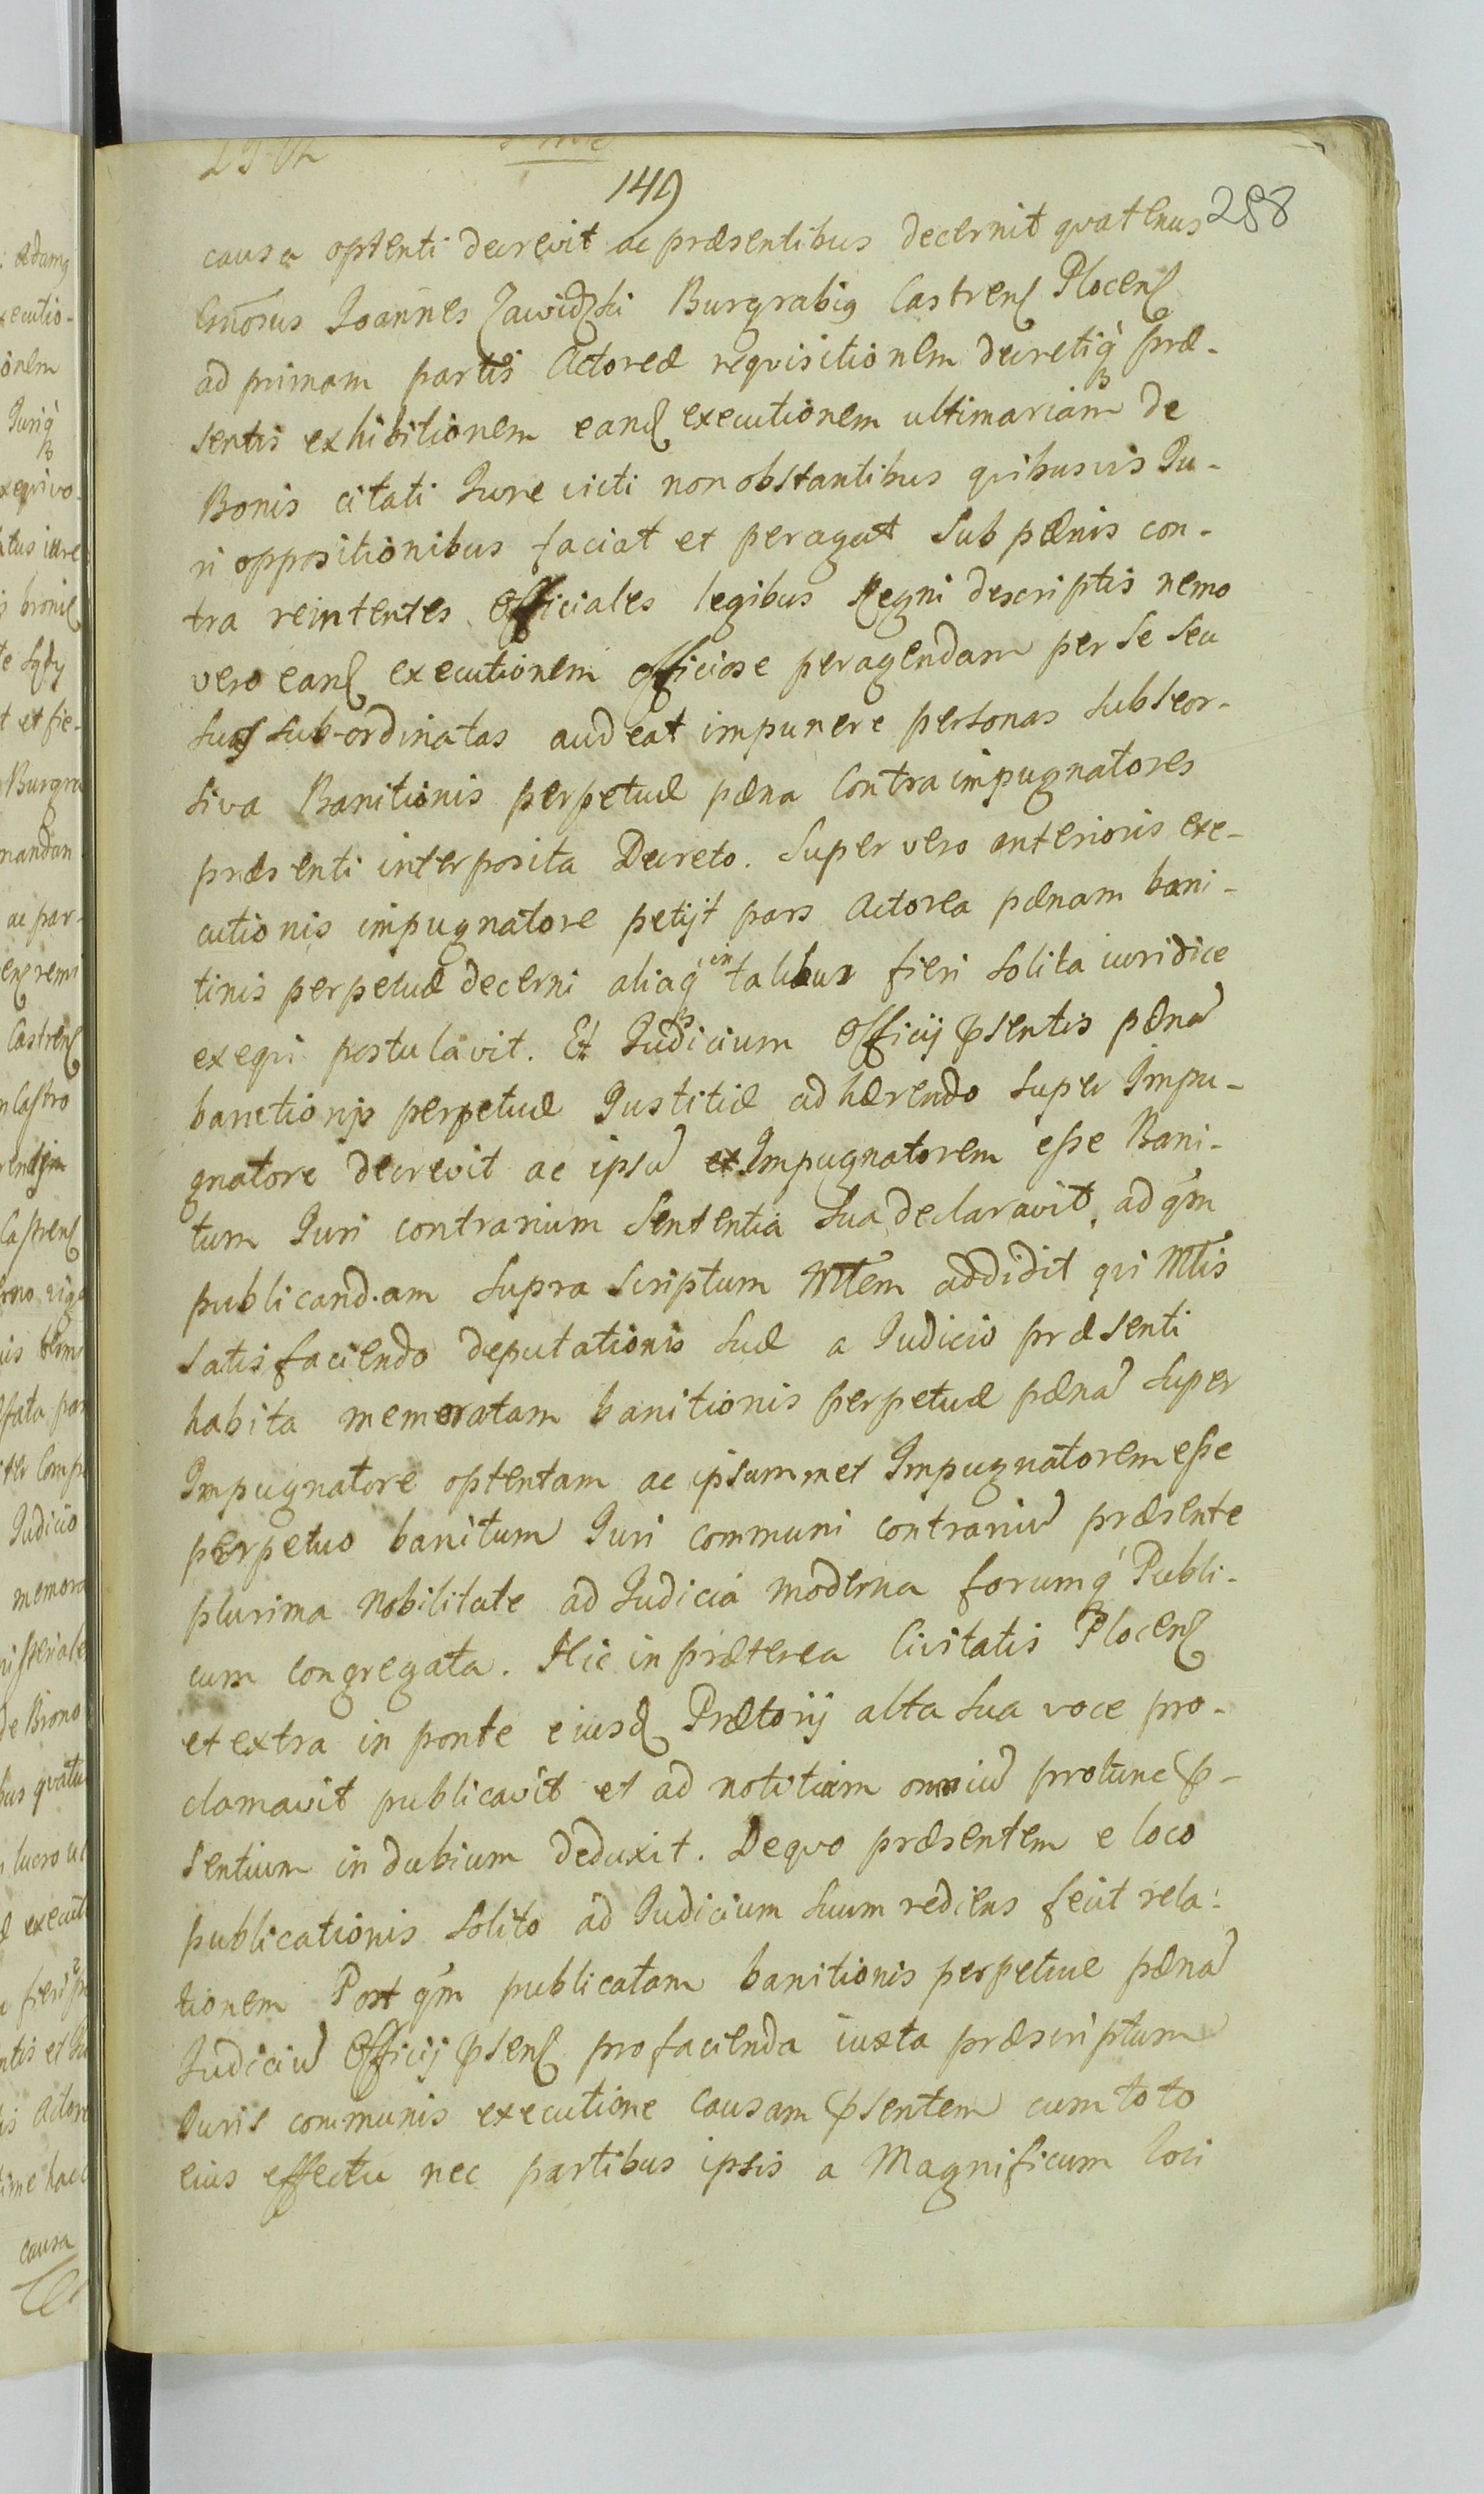 149
288
causa optenti decrevit ac præsentibus decernit quatenus
Gnosus Joannes Zawidzki Burgrabig Castrens Plocens
ad primam partis Actoreæ requisitionem decretiq præ-
sentis exhibitionem eand executionem ultimariam de
Bonis citati Jure victi non obstantibus quibusvis Ju-
ri oppositionibus faciat et peragat sub pænis con-
tra reintentes Officiales legibus Regni descriptis nemo
vero eand executionem officiose peragendam per se seu
suas sub-ordinatas audeat impunere personas subseor-
siva Banitionis perpetuæ pæna Contra impugnatores
præsenti interposita Decreto. Super vero anterioris exe-
cutionis impugnatore petijt pars Actorea pænam bani-
tinis perpetuæ decerni aliaq in talibus fieri solita iuridice
exeqri postulavit. Et Judicium Officij psentis pæna
banitionis perpetuæ Justitiæ adhærendo super Impu-
gnatore decrevit ac ipsu et Impugnatorem esse Bani-
tum Juri contrarium Sententia sua declaravit, ad qm
publicand.am supra scriptum Mtem addidit qui Mtis
satisfaciendo deputationis suæ a Judicio præsenti
habita memoratam banitionis perpetuæ pæna super
Impugnatore optentam ac ipsummet Impugnatorem esse
perpetuo banitum Juri communi contrariu præsente
plurima Nobilitate ad Judicia moderna forumq Publi-
cum congregata. Hic in præterea Civitatis Plocens
et extra in ponte eiusd Prætorij alta sua voce pro-
clamavit publicavit et ad notitiam omniu protunc p-
sentium in dubium deduxit. De quo præsentem e loco
publicationis solito ad Judicium suum rediens fecit rela-
tionem Post qm publicatam banitionis perpetuæ pæna
Judiciu Officij psens pro facienda iuxta præscriptum
Juris communis executione causam psentem cum toto
eius effectu nec partibus ipsis a Magnificum loci